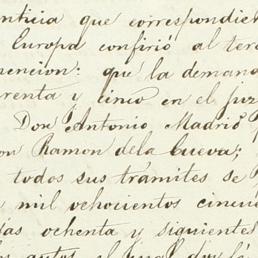 enticia que correspondie
Europa confirió al terc
mencion: que la demand
renta y cinco en el juz
Don Antonio Madrid
on Ramon dela Cueva;
todos sus trámites se
mil vehocuentos cincu
jas ochenta y siguientes